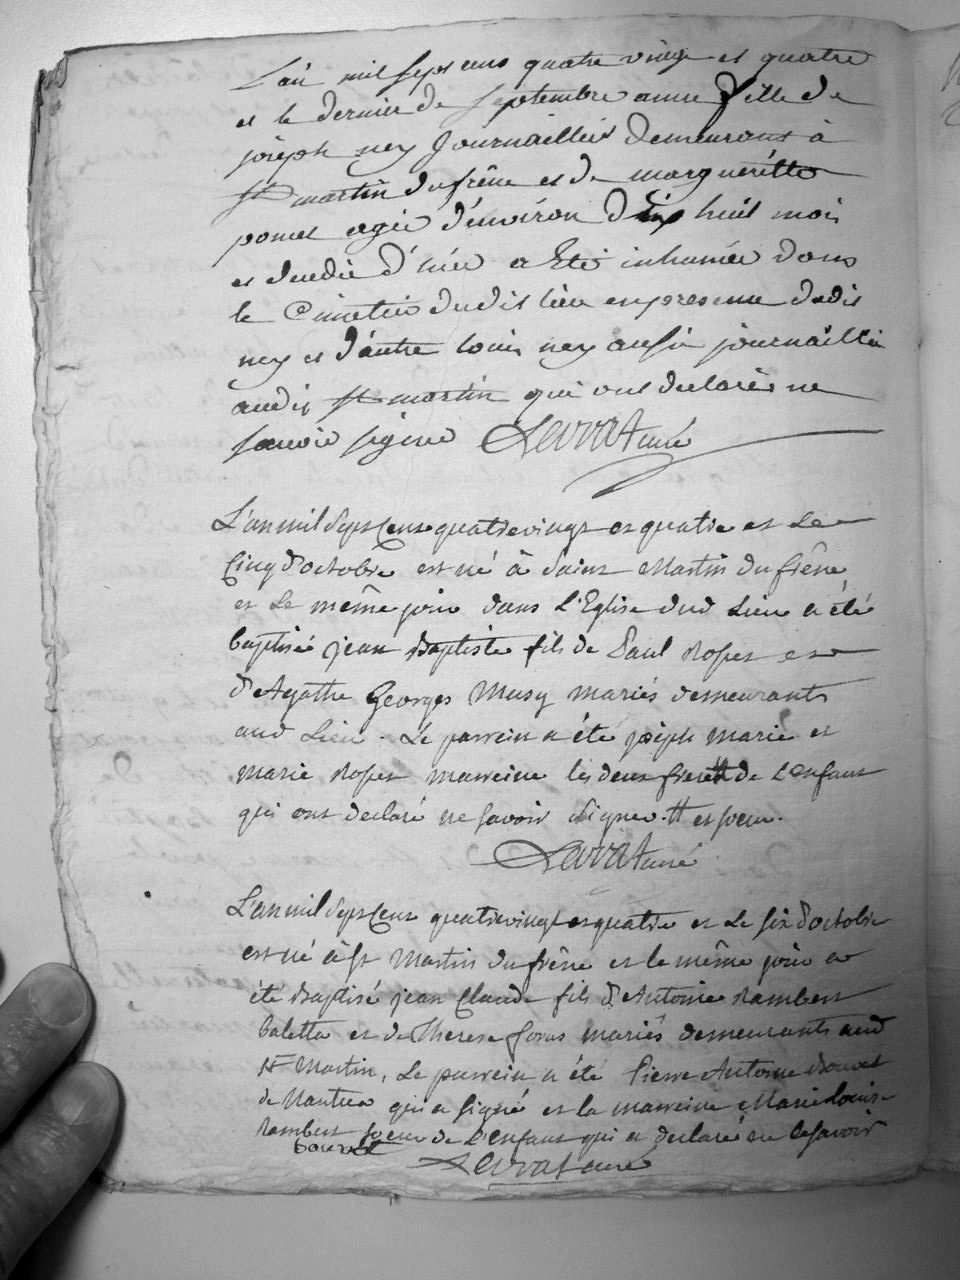 L'an mil sept cens quatre vingt et quatre
et le dernier de septembre anne fille de
joseph ney journaillier demeurant à
st martin du frêne et de margueritte
poncet agée d'environ dix huit mois
et decedée d'hier a Eté inhumée dans
le Cimetier dudit lieu en presence dudit
ney et d'autre louis ney aussi journaillier
audit st martin qui ont declarés ne
savoir signer Lavrat curé
L'an mil Sept Cens quatrevingt et quatre et Le
Cinq d'octobre est né à Saint Martin du frêne
et Le même jour dans L'Eglise dud Lieu a été
baptisé jean Baptiste fils de Paul Ropes et
d'Agathe Georges Musy mariés demeurants
aud Lieu. Le parrein a été joseph Marie et
Marie Ropes marreine les deux frere # de L'enfant
qui ont declaré ne savoir Signer. # et soeur.
Lavrat curé
L'an mil Sept Cens quatrevingt et quatre et Le six d'octobre
est né à st Martin du frêne et le même jour a
été Baptisé jean Claude fils d'Antoine Rambert
baletta et de Therese foras mariés demeurants aud
st Martin, Le parrein a été Pierre Antoine Bouvet
de Nantua qui a signé et la marreine Marie Louise
Rambert soeur de L'enfant qui a declaré ne le savoir
bouvet
Lavrat curé